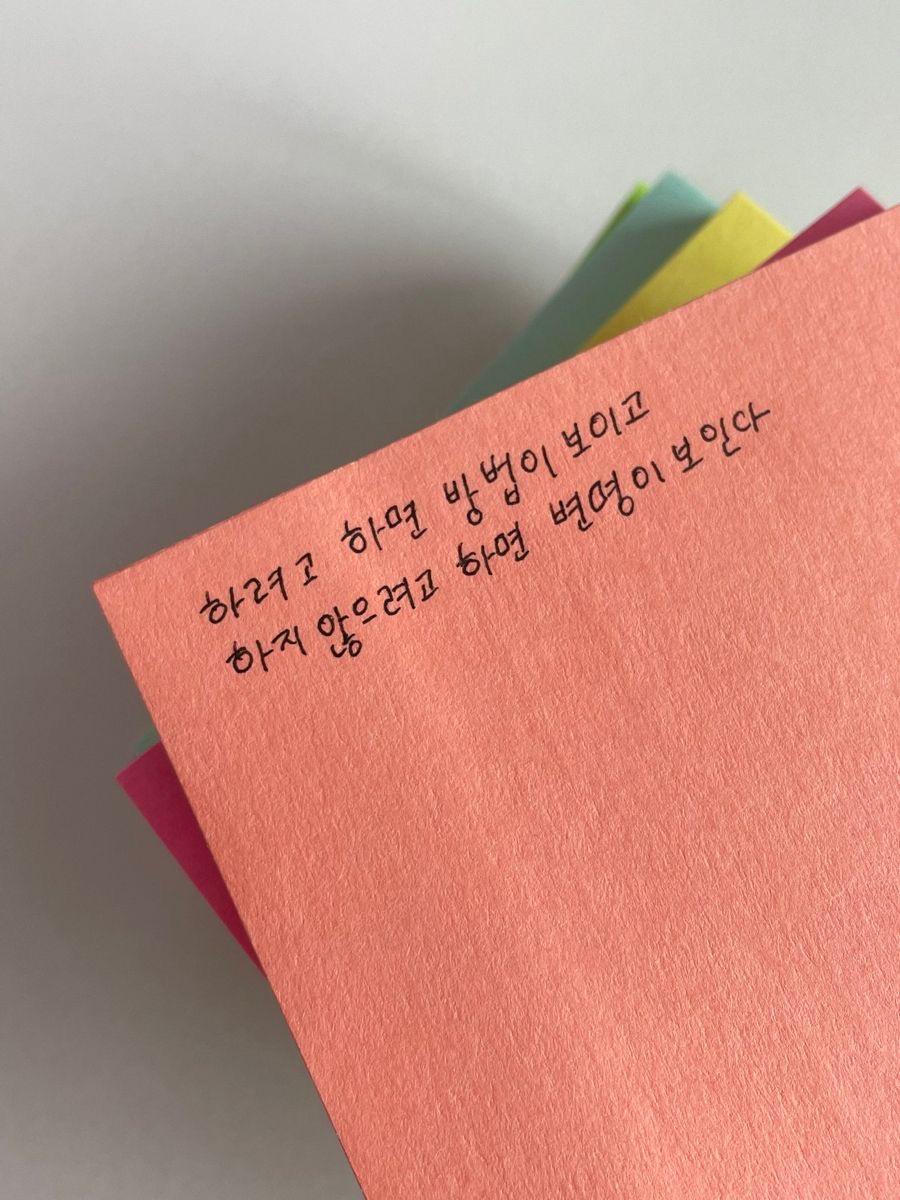 하려고 하면 방법이 보이고
하지 않으려고 하면 변명이 보인다